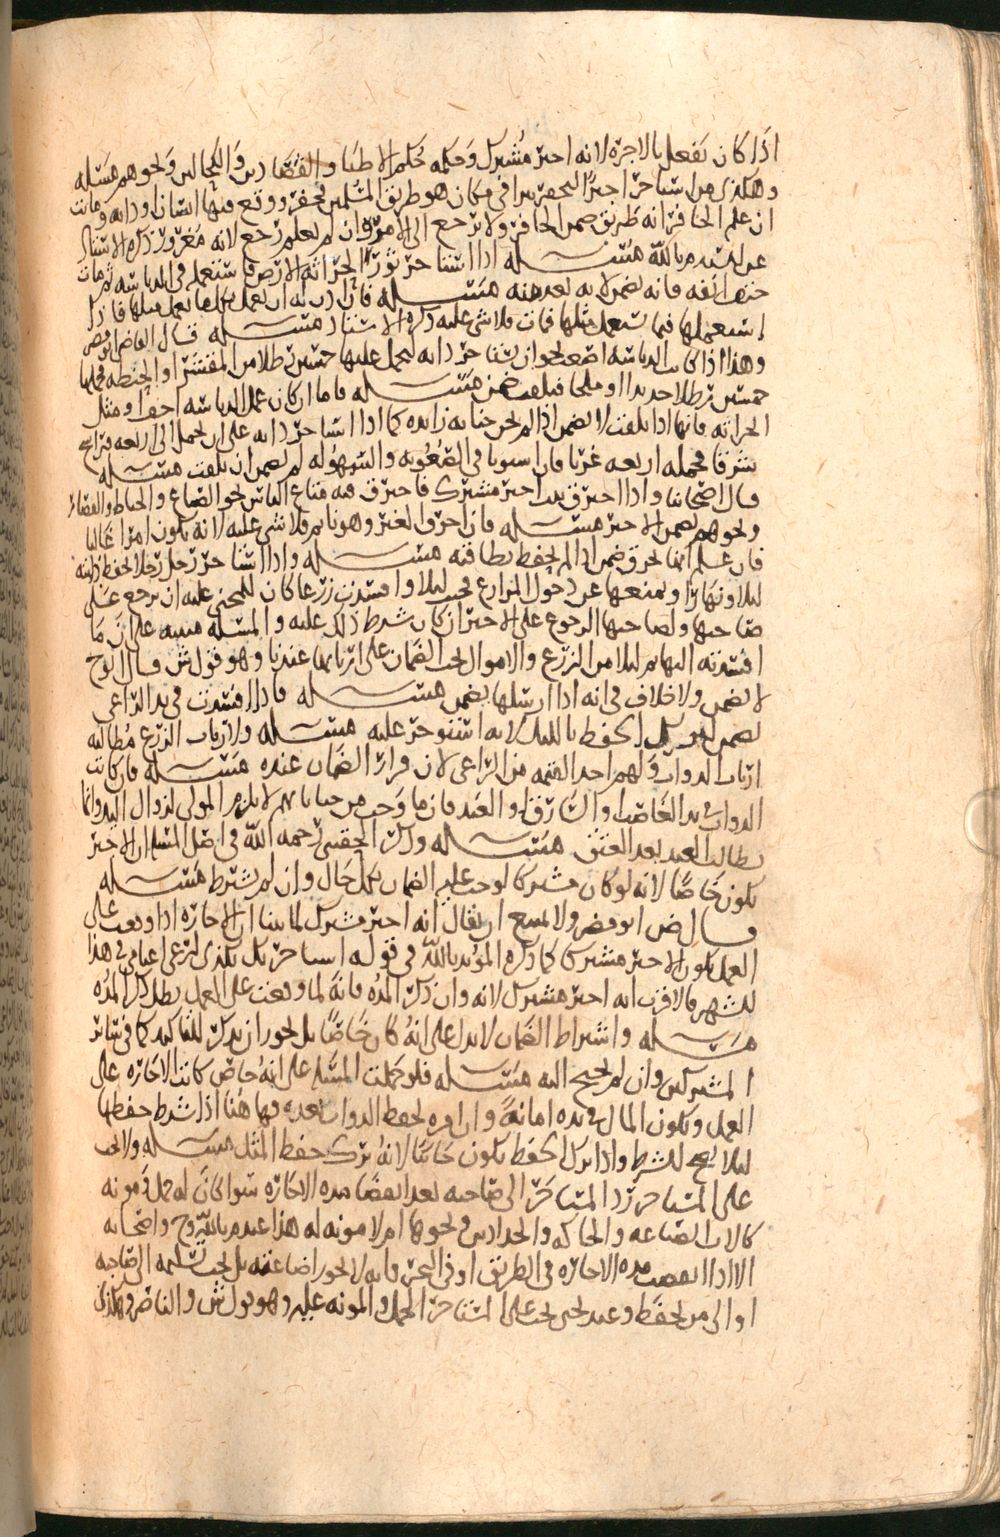 اذا كان يفعل بالاجرة لانه اجير مشترك وحكمه حكم الاطبا والقصارين والكيالين ونحوهم مسئلة
وهكذى من استاجر اجيرا ليحفر بيرا في مكان هو طريق المسلمين فحفر ووقع فيها انسان او دابه ومات
ان علم الحافر انه طريق ضمن الحافر ولا يرجع الى الامر وان لم يعلم رجع لانه مغرور ذكره الاستاذ
عن المويد بالله مسئله اذا استاجر ثورا لحراثة الارض فاستعمله في الدياسه ثم مات
حتف انفه فانه يضمن لانه تعد منه مسئله فان اذن له ان يعمل بها ما يعمل مثلها فاذا
استعملها فيما يستعمل مثلها فماتت فلا شي عليه ذكره الاستاذ مسئله قال القاضي ابو مضر
وهذا اذا كانت الدياسه اصعب نحو ان يستاجر دابه ليحمل عليها خمسين رطلا من المقشر او الحنطه فحملها
خمسين رطلا حديدا او ملحا فتلفت ضمن مسئله فاما ان كان عمل الدياسه اخف او مثل
الحراثه فانها اذا تلفت لا يضمن اذا لم يكن جنايه زايده كما اذا استاجر دابه على ان يحمل الى اربعه فراسخ
شرقا فحمله اربعه غربا فان استويا في الصعوبه والسهوله لم يضمن ان تلفت مسئله
قال اصحابنا واذا احترق بيت اجير مشترك فاحترق فيه متاع الناس نحو الصباغ والخياط والقصار
ونحوهم ضمن الاجير مسئله فان احرق الغير وهو نايم فلا شي عليه لانه يكون امرا غالبا
فان علم انها تحرق ضمن اذا لم يحفظ بطاقته مسئله واذا استاجر رجل رجلا لحفظ دابته
ليلا ونهارا ويمنعها عن دخول المزارع فجت ليلا وافسدت زرعا كان للمجني عليه ان يرجع على
صاحبها ولصاحبها الرجوع على الاجير ان كان شرط ذلك عليه والمسئله مبنيه على ان ما
افسدته البهايم ليلا من الزرع والاموال يجب الضمان على اربابها عندنا وهو قول ش وقال ابو ح
لا يضمن ولا خلاف في انه اذا ارسلها يضمن مسئله فاذا افسدت في يد الراعي
يضمن لترك الحفظ بالليل لانه استؤجر عليه مسئله ولارباب الزرع مطالبه
ارباب الدواب ولهم اخذ القيمه من الراعي لان قرار الضمان عنده مسئله فان كانت
الدواب في يد الغاصب والسارق والعبد فان ما وجب من جناياتهم لا يلزم المولى لزوال اليد وانما
يطالب العبد بعد العتق مسئله وذكر الحقيني رحمه الله في اصل المسئله ان الاجير
يكون خاصا لانه لو كان مشتركا لوجب عليه الضمان بكل حال وان لم يشترط مسئله
قال ض ابو مضر ولا يمتنع ان يقال انه اجير مشترك لما بينا ان الاجاره اذا وقعت على
العمل يكون الاجير مشتركا كما ذكره المويد بالله في قوله استاجرتك بكذى لترعى اغنامي في هذا
الشهر فالاقرب انه اجير مشترك لانه وان ذكر المده فانه لما وقعت على العمل بطل ذكر المده
مسئله واشتراط الضمان لا يدل على انه كان خاصا بل يجوز ان يذكر للتاكيد كما في ساير
المشتركين وان لم يحتج اليه مسئله فلو حملت المسئله على انه خاص كانت الاجاره على
العمل ويكون المال في يده امانة وان امره بحفظ الدواب بعده فها هنا اذا شرط حفظها
ليلا يصح الشرط واذا ترك الحفظ يكون خاينا لانه ترك حفظ المثل مسئله ولا يجب
على المستاجر رد المستاجر الى صاحبه بعد انقضا مده الاجاره سوا كان له حمل ومونه
كالات الصناعه والحاكه والحدادين ونحوها ام لا مونه له هذا عند م بالله وح واصحابه
الا اذا انقضت مده الاجاره في الطريق او في البحر فانه لا يجوز اضاعته بل يجب تسليمه الى صاحبه
او الى من يحفظ وعند يحيى يجب على المستاجر الحمل والمونه عليه وهو قول ش والناصر وهكذى